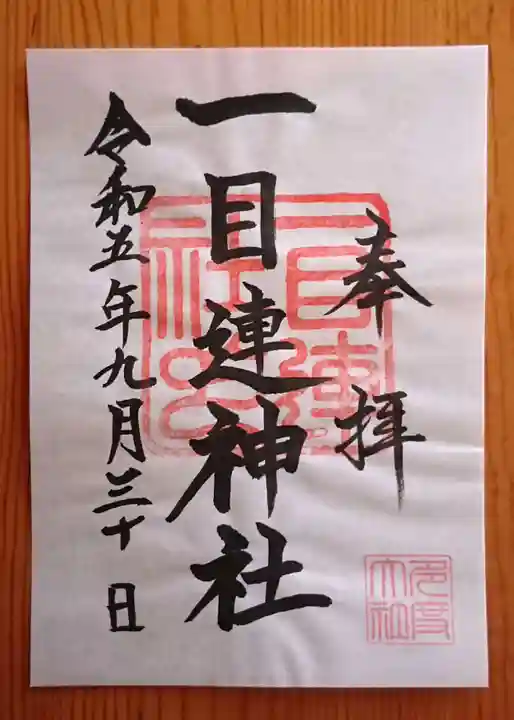 奉拝
一目連神社
令和五年九月三十日
多度大社